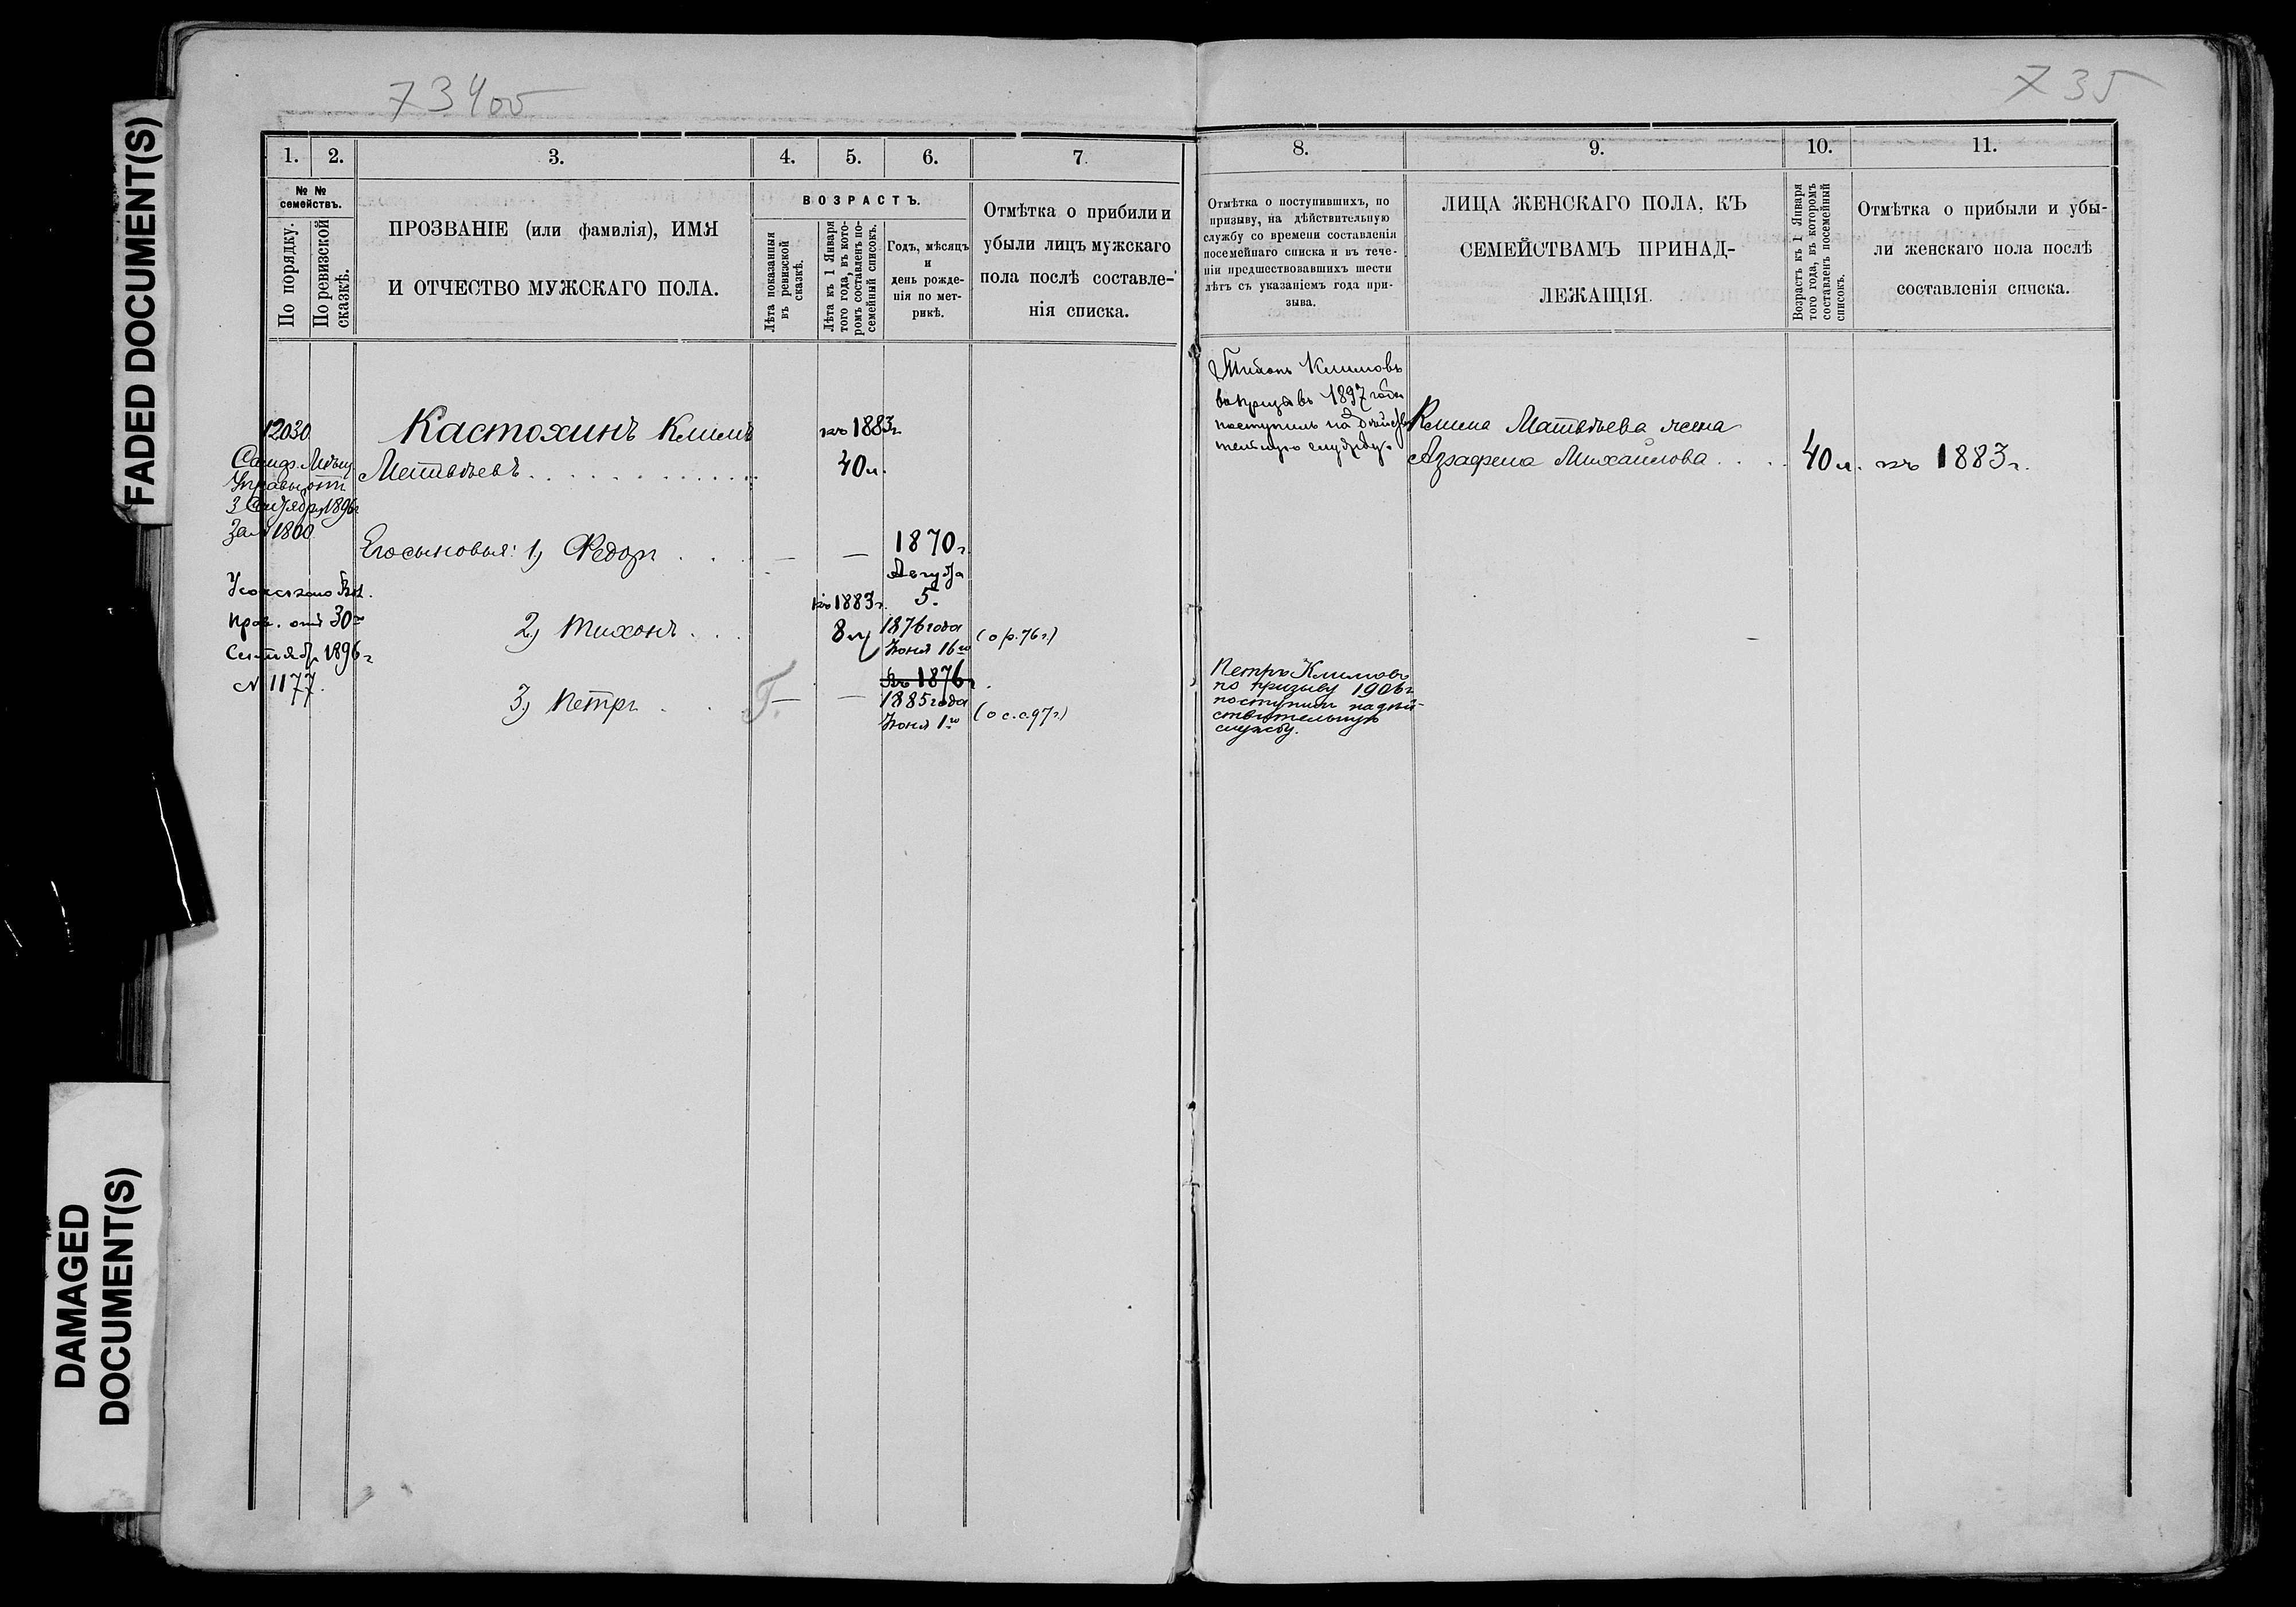 FADED DOCUMENT(S)
DAMAGED
DOCUMENT(S)
734об
1.
2.
3.
4.
5.
6.
7.
№ №
семействъ.
По порядку.
По ревизской
сказкѣ.
ПРОЗВАНІЕ (или фамилія), ИМЯ
И ОТЧЕСТВО МУЖСКАГО ПОЛА.
ВОЗРАСТЪ.
Лѣта показанныя
въ ревизской
сказкѣ.
Лѣта къ 1 Января
того года, въ кото-
ромъ составленъ по-
семейный списокъ.
Годъ, мѣсяцъ
и
день рожде-
нія по мет-
рикѣ.
Отмѣтка о прибили и
убыли лицъ мужскаго
пола послѣ составле-
нія списка.
12030
Управы отъ
3 Сентября 1896г
за № 1800
прав. отъ 30го
Сентябр 1896г
№ 1177.
Кастохинъ Климъ
Матвѣевъ
къ 1883г
40л.
Его сыновья: 1) Федоръ . . . — —
1870г.
Августа
5.
2) Тихонъ . . .
къ 1883г.
8л
1876 года
Іюня 16го
(о р. 76 г.)
3) Петръ . . . — —
Въ 1876г.
1885 года
Іюня 1го
(о с. с. 97 г.)
735
8.
9.
10.
11.
Отмѣтка о поступившихъ, по
призыву, на дѣйствительную
службу со времени составленія
посемейнаго списка и въ тече-
ніи предшествовавшихъ шести
лѣтъ съ указаніемъ года при-
зыва.
ЛИЦА ЖЕНСКАГО ПОЛА, КЪ
СЕМЕЙСТВАМЪ ПРИНАД-
ЛЕЖАЩІЯ.
Возрастъ къ 1 Января
того года, въ которомъ
составленъ посемейный
списокъ.
Отмѣтка о прибыли и убы-
ли женскаго пола послѣ
составленія списка.
Тихонъ Климовъ
въ призывъ 1897 года
поступилъ на дѣйстви
тельную службу.
Клима Матвѣева жена
Аграфена Михайлова . . . .
40 л. къ 1883 г.
Петръ Климовъ
по призыву 1906г
поступилъ на дѣй-
ствительную
службу.